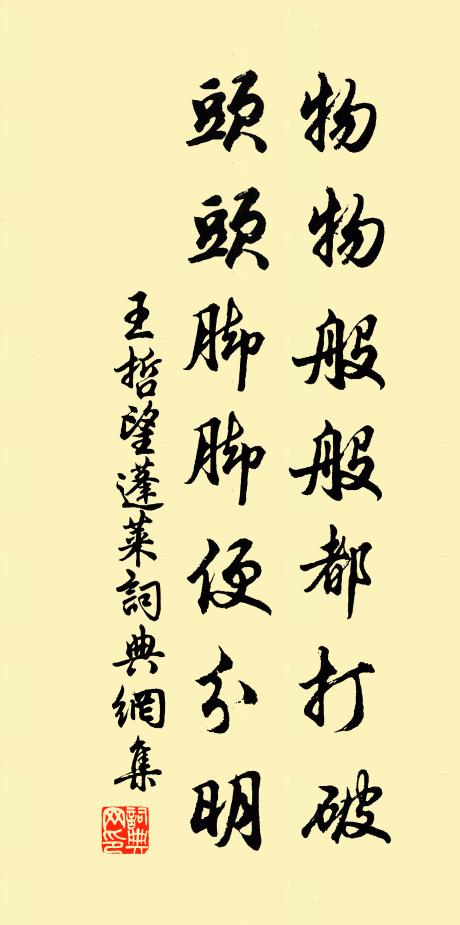 物物般般都打破
頭頭脚脚便分明
王哲望蓬萊詞典網集
詞典网印